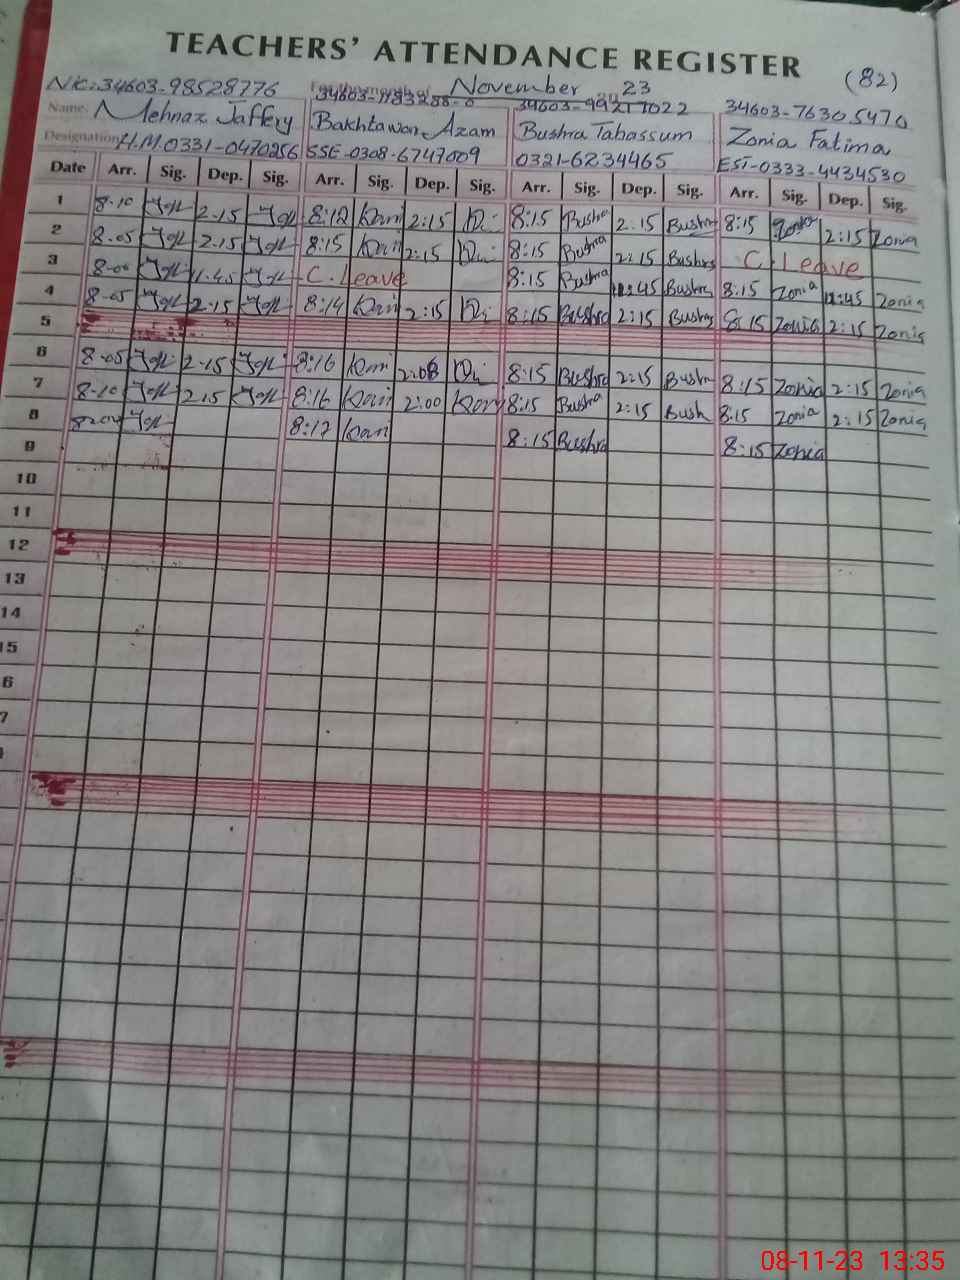 TEACHERS' ATTENDANCE REGISTER
(82)
For the month of November 2023
NIC: 34603-98528776 34603-1183288-0 34603-99277022 34603-76305470
Name. Mehnaz Jaffery Bakhtawar Azam Bushra Tabassum Zonia Fatima
Designation H.M 0331-0470256 SSE-0308-6747009 0321-6234465 EST-0333-4434530
Date Arr. Sig. Dep. Sig. Arr. Sig. Dep. Sig. Arr. Sig. Dep. Sig. Arr. Sig. Dep. Sig.
1 8-10 2-15 8:12 2:15 8:15 Bushra 2:15 Bushra 8:15 Zonia 2:15 Zonia
2 8-05 2-15 8:15 2:15 8:15 Bushra 2:15 Bushra C. Leave
3 C. Leave 8:15 Bushra :45 Bushra 8:15 Zonia :45 Zonia
4 8-05 2-15 8:14 2:15 8:15 Bushra 2:15 Bushra 8:15 Zonia 2:15 Zonia
5
6 8-05 2-15 8:16 8:15 Bushra 2:15 Bushra 8:15 Zonia 2:15 Zonia
7 8-10 2-15 8:16 2:00 8:15 Bushra 2:15 Bush 8:15 Zonia 2:15 Zonia
8 8:17 8:15 Bushra 8:15 Zonia
9
10
11
12
13
14
15
6
7
08-11-23 13:35